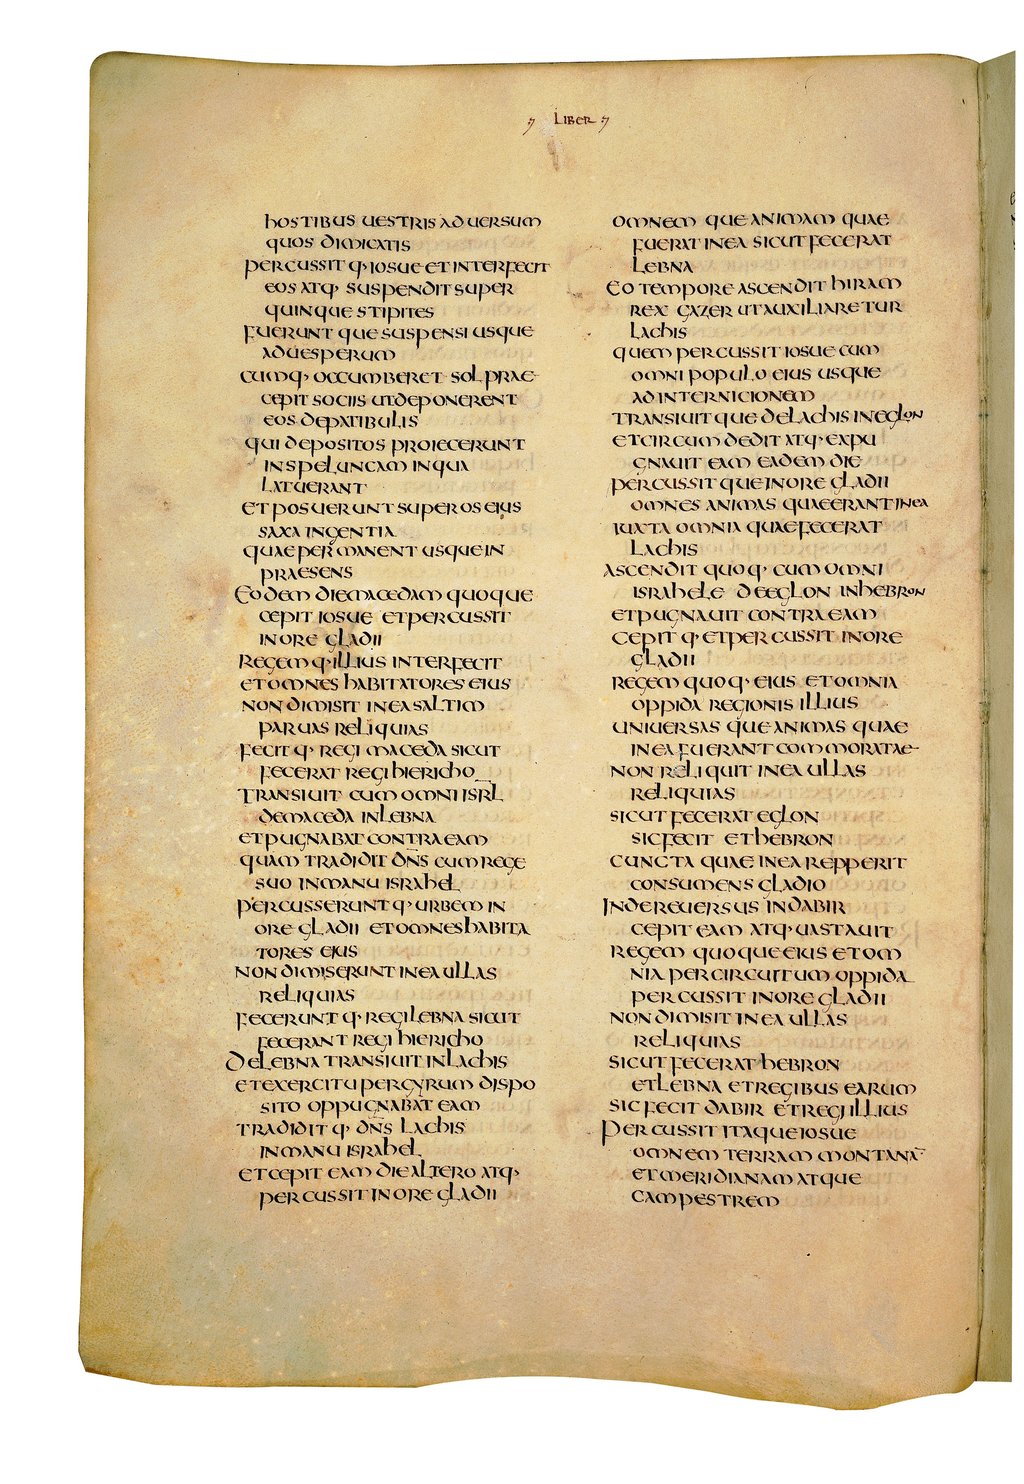 LIBER
hostibus uestris aduersum
quos dimicatis
percussit q· iosue et interfecit
eos atq· suspendit super
quinque stipites
fuerunt que suspensi usque
ad uesperum
cumq· occumberet sol prae
cepit sociis ut deponerent
eos de patibulis
qui depositos proiecerunt
in speluncam in qua
latuerant
et posuerunt super os eius
saxa ingentia
quae permanent usque in
praesens
Eodem die macedam quoque
cepit iosue et percussit
in ore gladii
Regem q· illius interfecit
et omnes habitatores eius
non dimisit in ea saltim
paruas reliquias
fecit q· regi maceda sicut
fecerat regi hiericho
Transiuit cum omni isrl
de maceda in lebna
et pugnabat contra eam
quam tradidit dns cum rege
suo in manu israhel
percusserunt q· urbem in
ore gladii et omnes habita
tores eius
non dimiserunt in ea ullas
reliquias
fecerunt q· regi lebna sicut
fecerant regi hiericho
De lebna transiuit in lachis
et exercitu per gyrum dispo
sito oppugnabat eam
tradidit q· dns lachis
in manu israhel
et cepit eam die altero atq·
percussit in ore gladii
omnem que animam quae
fuerat in ea sicut fecerat
lebna
Eo tempore ascendit hiram
rex gazer ut auxiliaretur
lachis
quem percussit iosue cum
omni populo eius usque
ad internicionem
Transiuit que de lachis in eglon
et circumdedit atq· expu
gnauit eam eadem die
percussit que in ore gladii
omnes animas quae erant in ea
iuxta omnia quae fecerat
lachis
ascendit quoq· cum omni
israhele de eglon in hebron
et pugnauit contra eam
cepit q· et percussit in ore
gladii
regem quoq· eius et omnia
oppida regionis illius
uniuersas que animas quae
in ea fuerant commoratae
non reliquit in ea ullas
reliquias
sicut fecerat eglon
sic fecit et hebron
cuncta quae in ea repperit
consumens gladio
Inde reuersus in dabir
cepit eam atq· uastauit
regem quoque eius et om
nia per circuitum oppida
percussit in ore gladii
non dimisit in ea ullas
reliquias
sicut fecerat hebron
et lebna et regibus earum
sic fecit dabir et regi illius
Percussit itaque iosue
omnem terram montana
et meridianam atque
campestrem